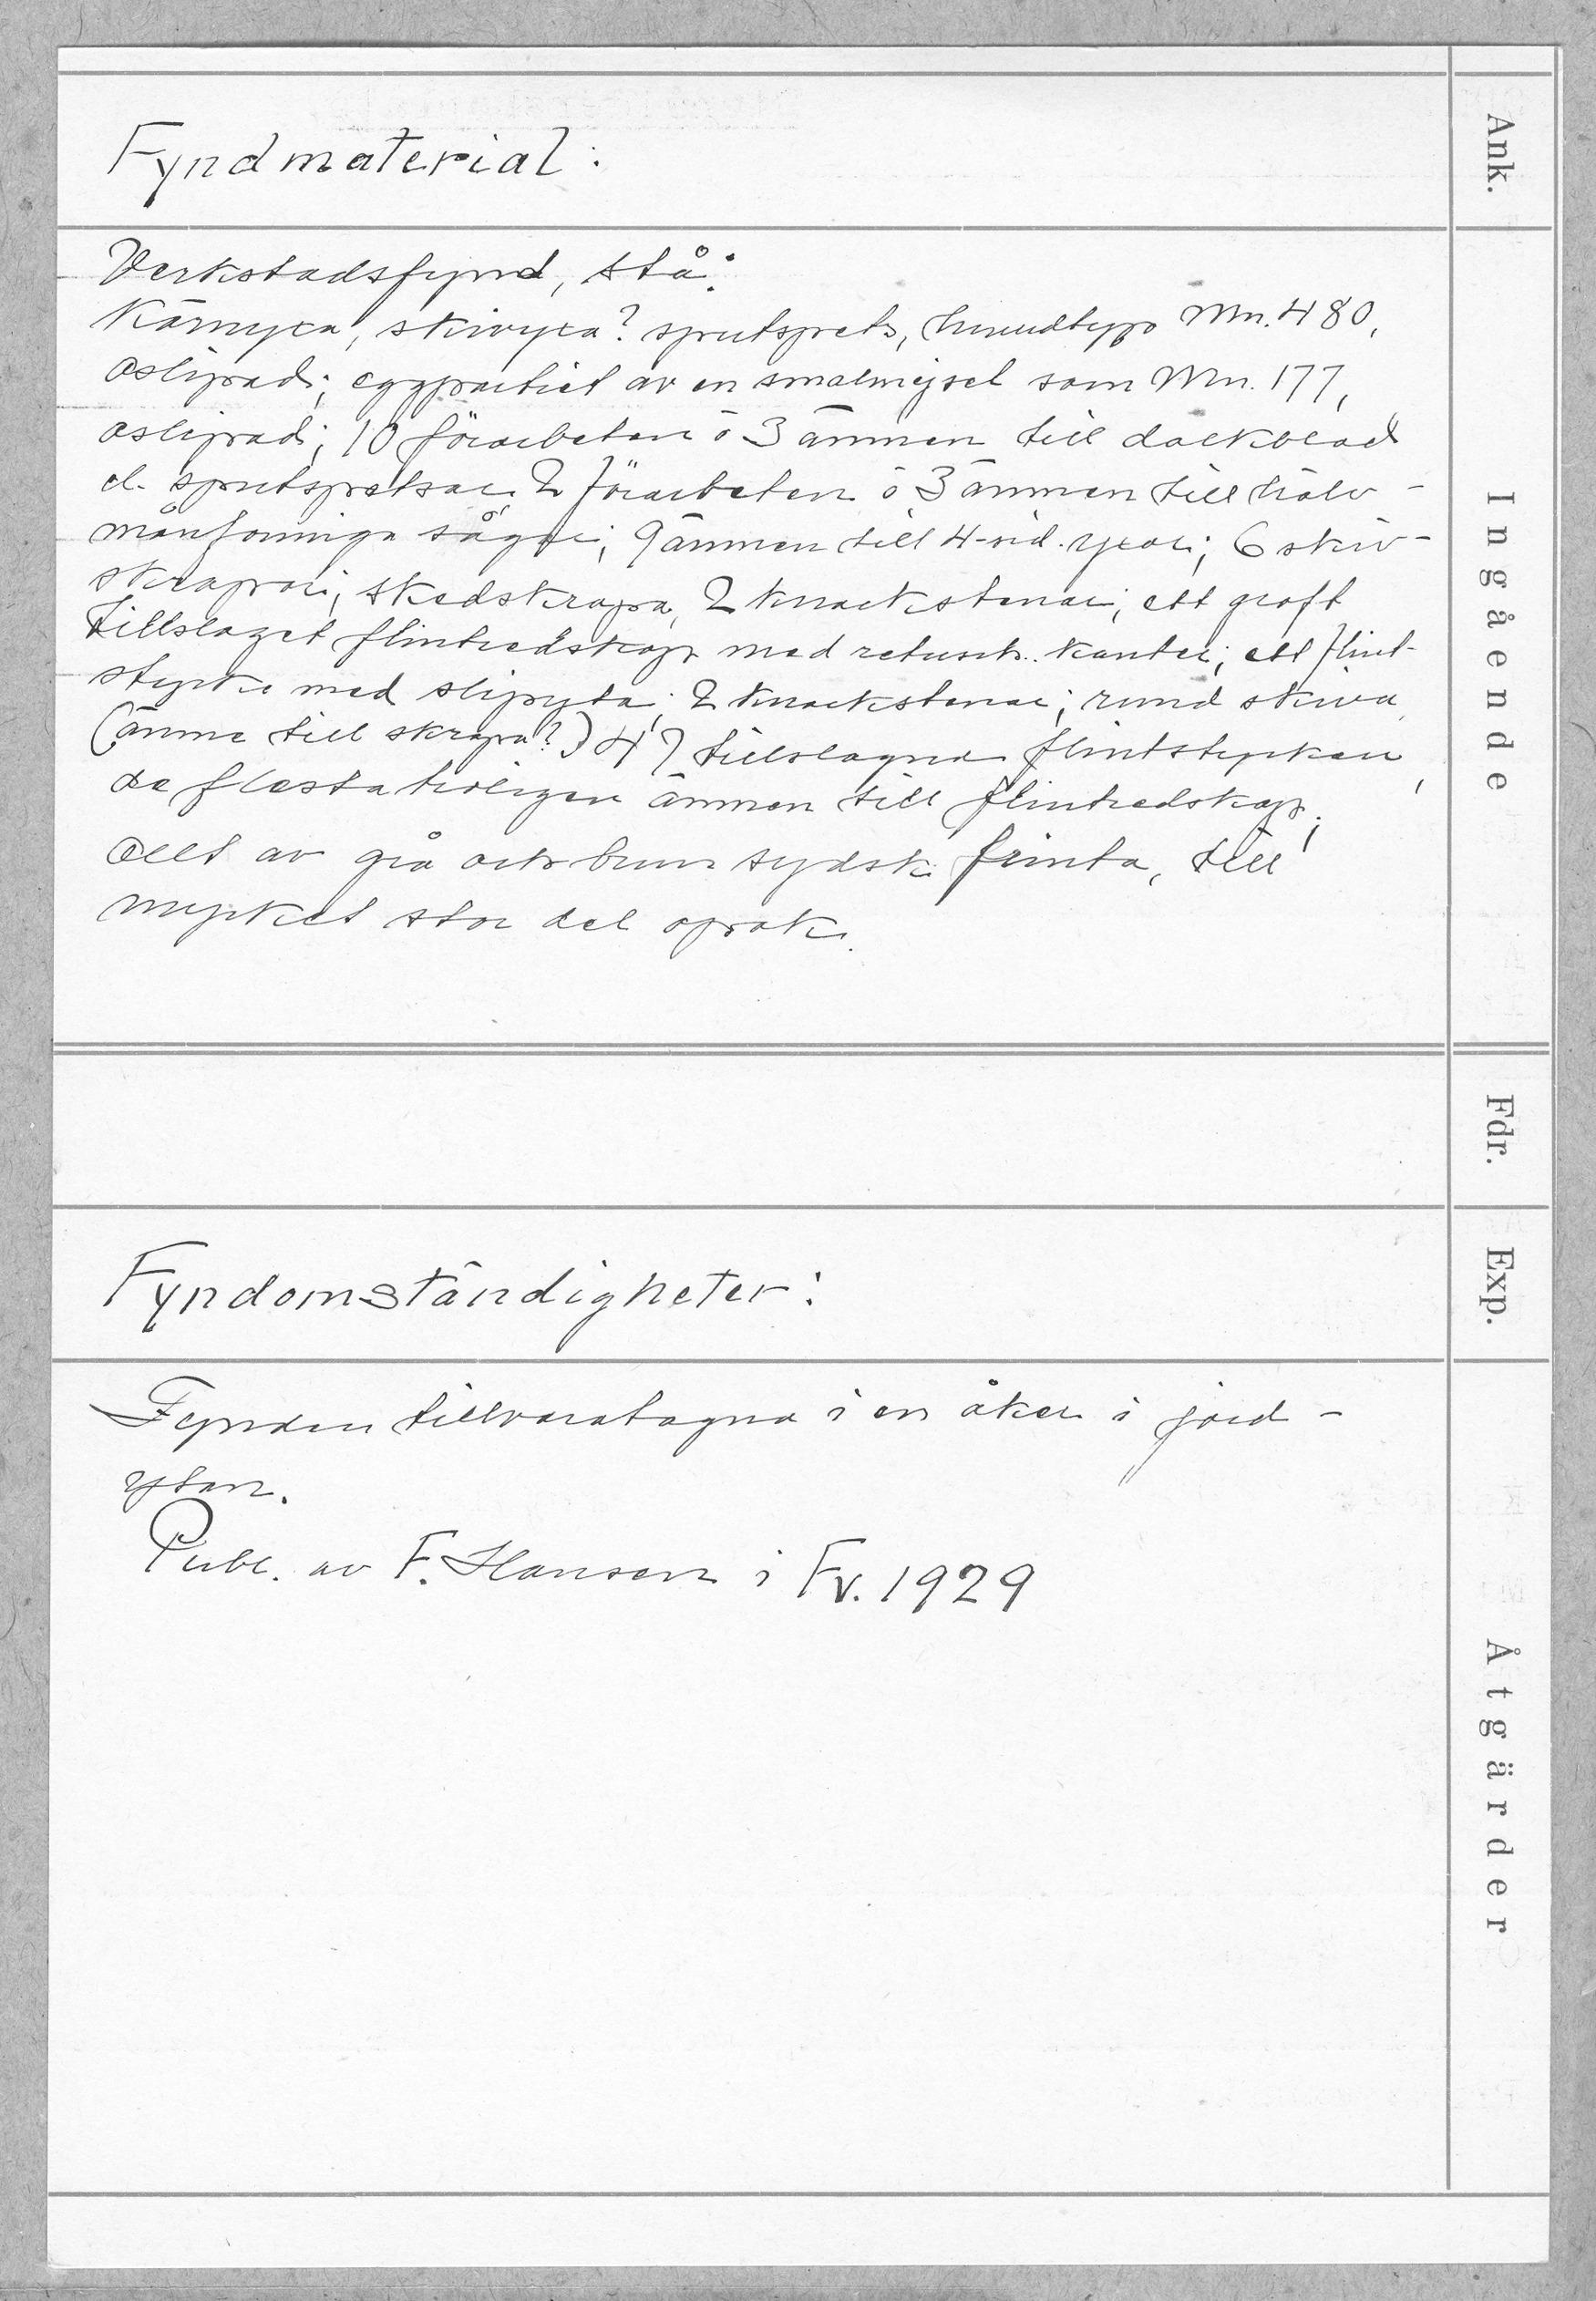 Fyndmaterial:
Verkstadsfynd, stå:
Kärnyxa, skivyxa? spjutspets, huvudtyp Mn. 480,
oslipad; eggpartiet av en smalmejsel som Mn. 177,
oslipad; 10 förarbeten o 3 ämnen till dolkblad
el. spjutspetsar; 2 förarbeten o 3 ämnen till halv-
månformiga sågar; 9 ämnen till 4-sid. yxor; 6 skiv-
skrapor; skedskrapa, 2 knackstenar; ett groft
tillslaget flintredskap med retusch. kanter; ett flint-
stycke med slipyta; 2 knackstenar; rund skiva
(ämne till skrapa?) 47 tillslagna flintstycken,
de flesta troligen ämnen till flintredskap;
Allt av grå och brun sydsk. flinta, till
mycket stor del opak.
Fyndomständigheter:
Fynden tillvaratagna i en åker i jord-
ytan.
Publ. av F. Hansen i Fv. 1929
Ank.
Ingående
Fdr.
Exp.
Åtgärder